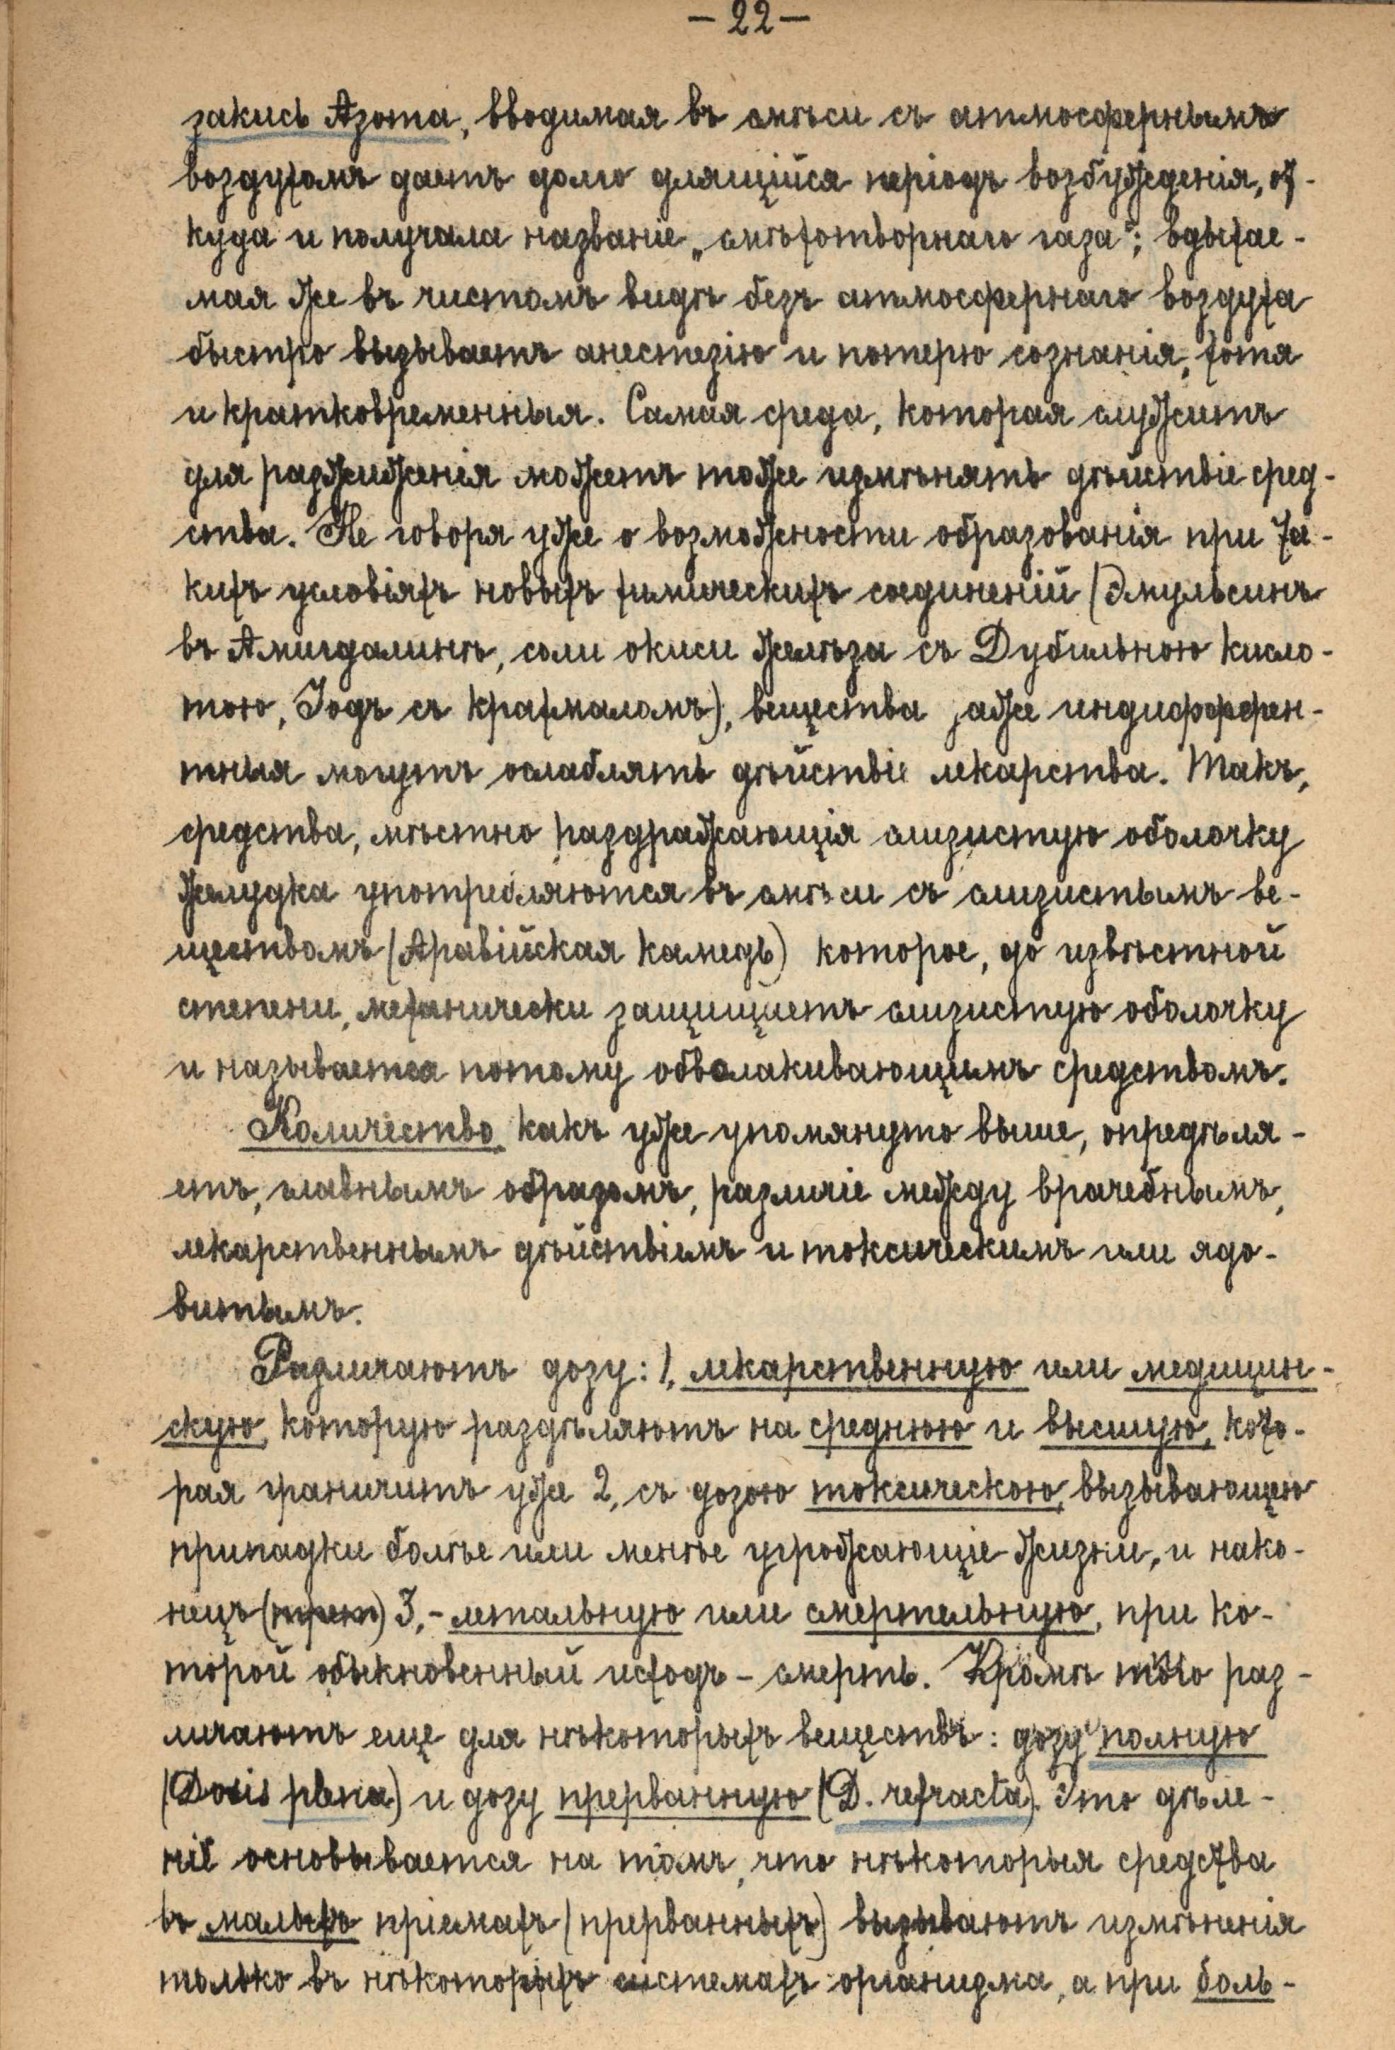 — 22 —
закись Азота, вводимая въ смѣси съ атмосфернымъ
воздухомъ даетъ долго длящійся періодъ возбужденія, от-
куда и получала названіе „смѣхотворнаго газа“; вдыхае-
мая же въ чистомъ видѣ безъ атмосфернаго воздуха
быстро вызываетъ анестезію и потерю сознанія, хотя
и кратковременныя. Самая среда, которая служитъ
для разжиженія можетъ тоже измѣнять дѣйствіе сред-
ства. Не говоря уже о возможности образованія при та-
кихъ условіяхъ новыхъ химическихъ соединеній (Эмульсинъ
въ Амигдалинѣ, соли окиси желѣза съ Дубильною кисло-
тою, Іодъ съ крахмаломъ), вещества даже индифферен-
тныя могутъ ослаблять дѣйствіе лекарства. Такъ,
средства, мѣстно раздражающія слизистую оболочку
желудка употребляются въ смѣси съ слизистымъ ве-
ществомъ (Аравійская камедь) которое, до извѣстной
степени, механически защищаетъ слизистую оболочку
и называется потому обволакивающимъ средствомъ.
Количество, какъ уже упомянуто выше, опредѣля-
етъ, главнымъ образомъ, различіе между врачебнымъ,
лекарственнымъ дѣйствіемъ и токсическимъ или ядо-
витымъ.
Различаютъ дозу: 1, лекарственную или медицин-
скую, которую раздѣляютъ на среднюю и высшую, кото-
рая граничитъ уже 2, съ дозою токсическою, вызывающею
припадки болѣе или менѣе угрожающіе жизни, и нако-
нецъ (трет) 3,- летальную или смертельную, при ко-
торой обыкновенный исходъ - смерть. Кромѣ того раз-
личаютъ еще для нѣкоторыхъ веществъ: дозу полную
(Dosis plena) и дозу прерванную (D. refracta). Это дѣле-
ніе основывается на томъ, что нѣкоторыя средства
въ малыхъ пріемахъ (прерванныхъ) вызываютъ измѣненія
только въ нѣкоторыхъ системахъ организма, а при боль-